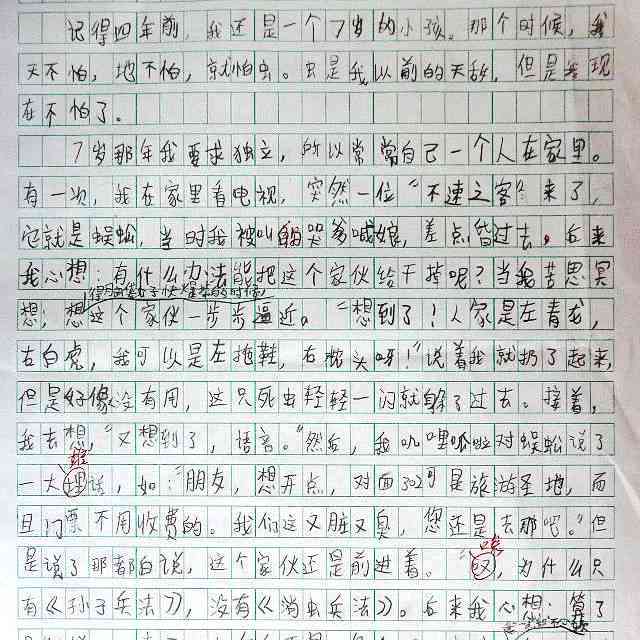 记得四年前，我还是一个7岁的小孩。那个时候，我
天不怕，地不怕，就怕虫。虫是我以前的天敌，但是我现
在不怕了。
7岁那年我要求独立，所以常常自己一个人在家里。
有一次，我在家里看电视，突然一位“不速之客”来了，
它就是蜈蚣，当时我被叫的哭爹喊娘，差点昏过去。后来
我心想：有什么办法能把这个家伙给干掉呢？当我苦思冥
想，
得脑袋好子快爆炸的时候，
想这个家伙一步步逼近。“想到了！人家是左青龙，
右白虎，我可以是左拖鞋，右枕头呀！”说着我就扔了起来，
但是好像没有用，这只死虫轻轻一闪就躲了过去。接着，
我去想，“又想到了，语言。”然后，我叽哩呱啦对蜈蚣说了
一大理话，如：“朋友，想开点，对面302可是旅游圣地，而
堆
且门票不用收费的。我们这又脏又臭，您还是去那吧。”但
是说了那都白说，这个家伙还是前进着。“叹，为什么只
唉
有《孙子兵法》，没有《治虫兵法》。后来我心想，算了